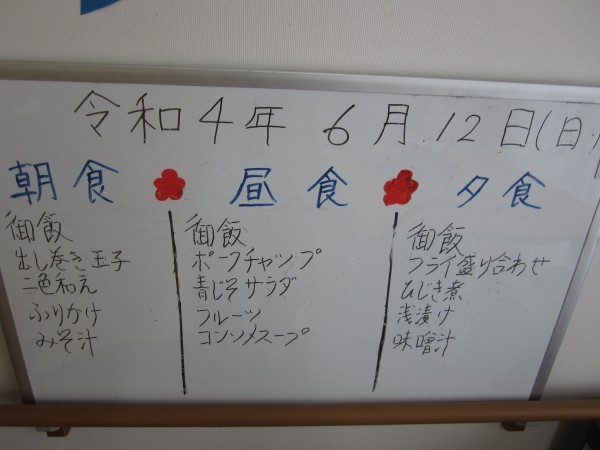 令和4年 6月12日(日)
朝食
御飯
出し巻き玉子
二色和え
ふりかけ
みそ汁
昼食
御飯
ポークチャップ
青じそサラダ
フルーツ
コンソメスープ
夕食
御飯
フライ盛り合わせ
ひじき煮
浅漬け
味噌汁